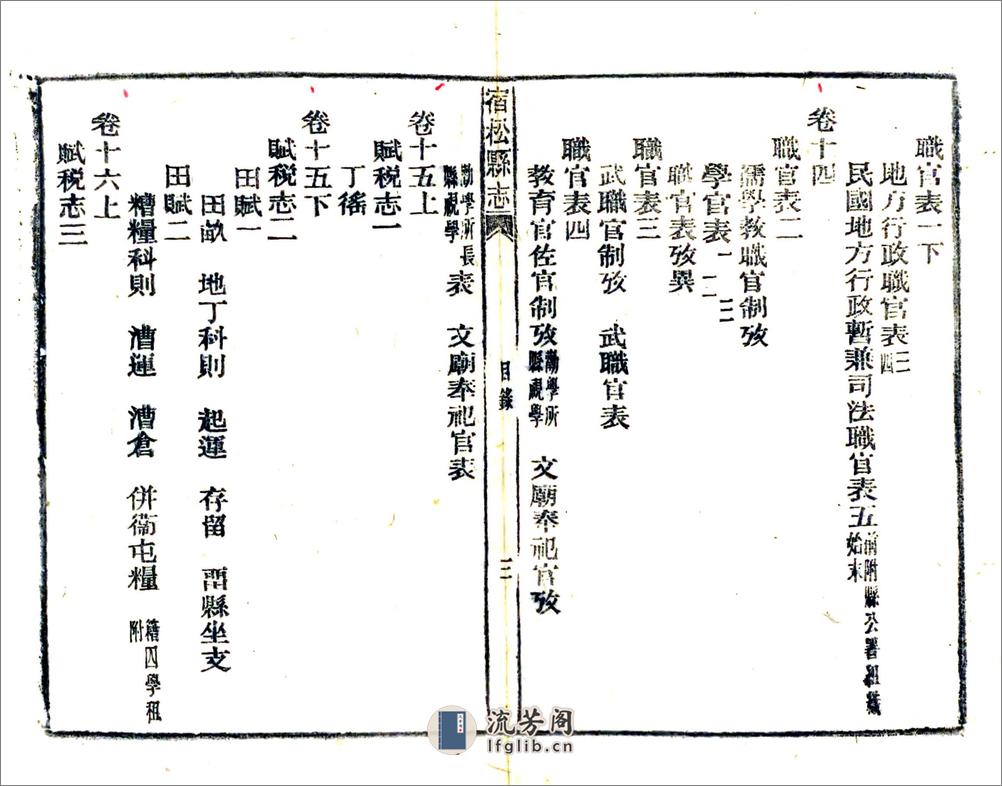 職官表一下
地方行政職官表三四
民國地方行政暫兼司法職官表五前附縣公署組織始末
卷十四
職官表二
儒學教職官制攷
學官表一二三
職官表攷異
職官表三
武職官制攷 武職官表
職官表四
教育官佐官制攷勸學所縣視學 文廟奉祀官攷
宿松縣志
目錄
三
勸學所長縣視學表 文廟奉祀官表
卷十五上
賦税志一
丁徭
卷十五下
賦税志二
田賦一
田畝 地丁科則 起運 存留 畱縣坐支
田賦二
糟糧科則 漕運 漕倉 併衞屯糧 籍四學租附
卷十六上
賦税志三
流芳阁
lfglib.cn